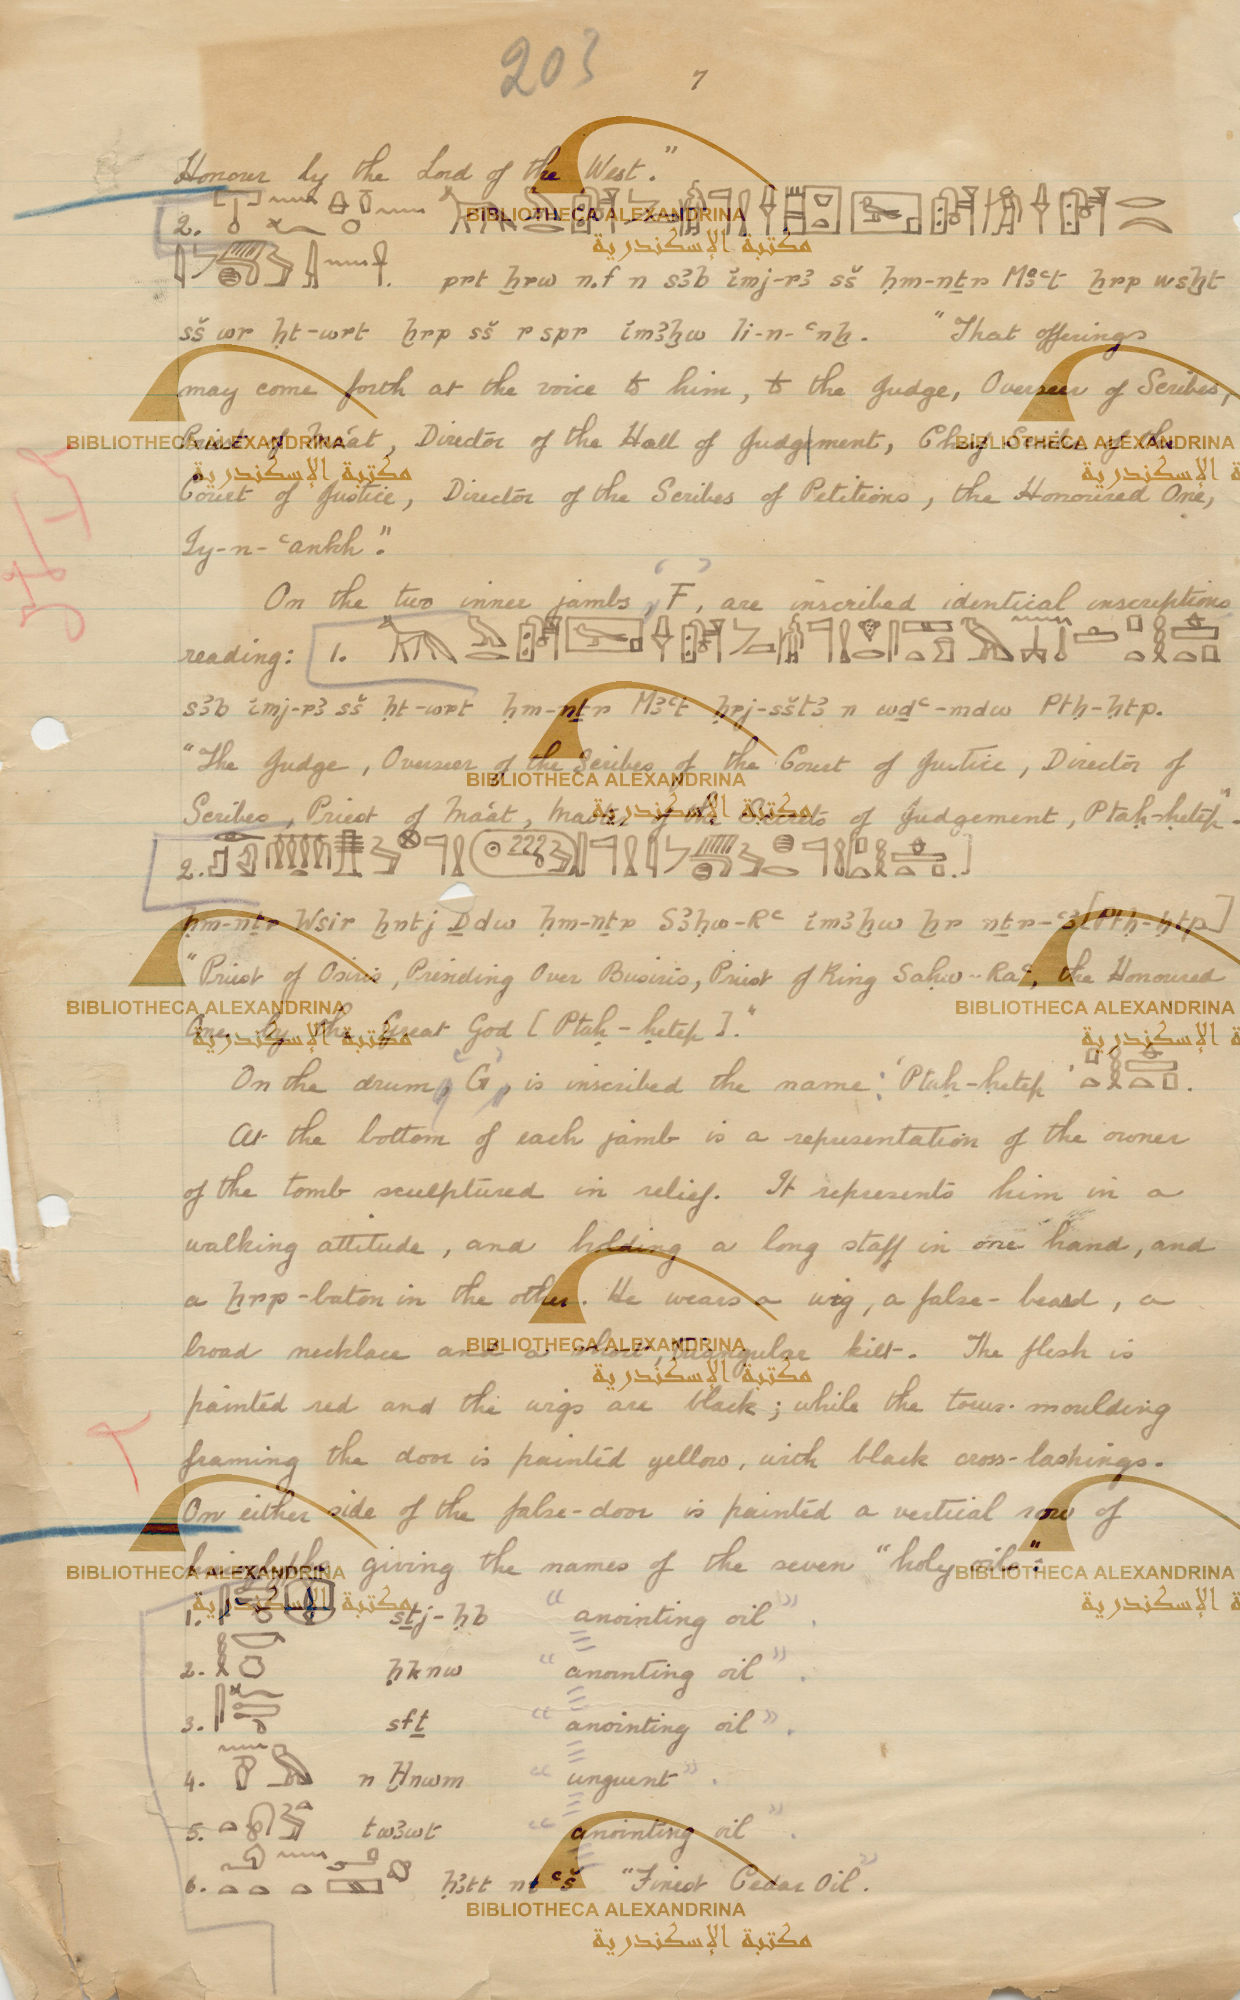 203
7
Honour by the Lord of the West."
2.
prt ẖrw n.f n sȝb ỉmj-rȝ sš ḥm-nṯr Mȝꜥt ḫrp wsḫt
sš wr ḥt-wrt ḫrp sš r spr ỉmȝḫw Ii-n-ꜥnḫ. "That offerings
may come forth at the voice to him, to the Judge, Overseer of Scribes,
Priest of Maát, Director of the Hall of Judgement, Chief Scribe of the
Court of Justice, Director of the Scribes of Petitions, the Honoured One,
Iy-n-ꜥankh."
On the two inner jambs, 'F', are inscribed identical inscriptions
reading: 1.
sȝb ỉmj-rȝ sš ḥt-wrt ḥm-nṯr Mȝꜥt ḥrj-sštȝ n wḏꜥ-mdw Ptḥ-ḥtp.
"The Judge, Overseer of the Scribes of the Court of Justice, Director of
Scribes, Priest of Maát, Master of the Secrets of Judgement, Ptaḥ-ḥetep".
2.
ḥm-nṯr Wsir ḫntj Ḏdw ḥm-nṯr Sȝḥw-Rꜥ ỉmȝḫw ḫr nṯr-ꜥȝ [Ptḥ-ḥtp]
"Priest of Osiris, Presiding Over Busiris, Priest of King Saḥw-Raꜥ, the Honoured
One by the Great God [Ptaḥ-ḥetep]."
On the drum, 'G', is inscribed the name: 'Ptaḥ-ḥetep'
At the bottom of each jamb is a representation of the owner
of the tomb sculptured in relief. It represents him in a
walking attitude, and holding a long staff in one hand, and
a ḫrp-baton in the other. He wears a wig, a false-beard, a
broad necklace and a short, triangular kilt. The flesh is
painted red and the wigs are black; while the torus-moulding
framing the door is painted yellow, with black cross-lashings.
On either side of the false-door is painted a vertical row of
hieroglyphs giving the names of the seven "holy oils":
1. sṯj-ḥb "anointing oil".
2. ḥknw "anointing oil".
3. sfṯ "anointing oil".
4. n Ḫnwm "unguent".
5. twȝwt "anointing oil".
6. ḥȝtt nt ꜥš "Finest Cedar Oil".
BIBLIOTHECA ALEXANDRINA
مكتبة الإسكندرية